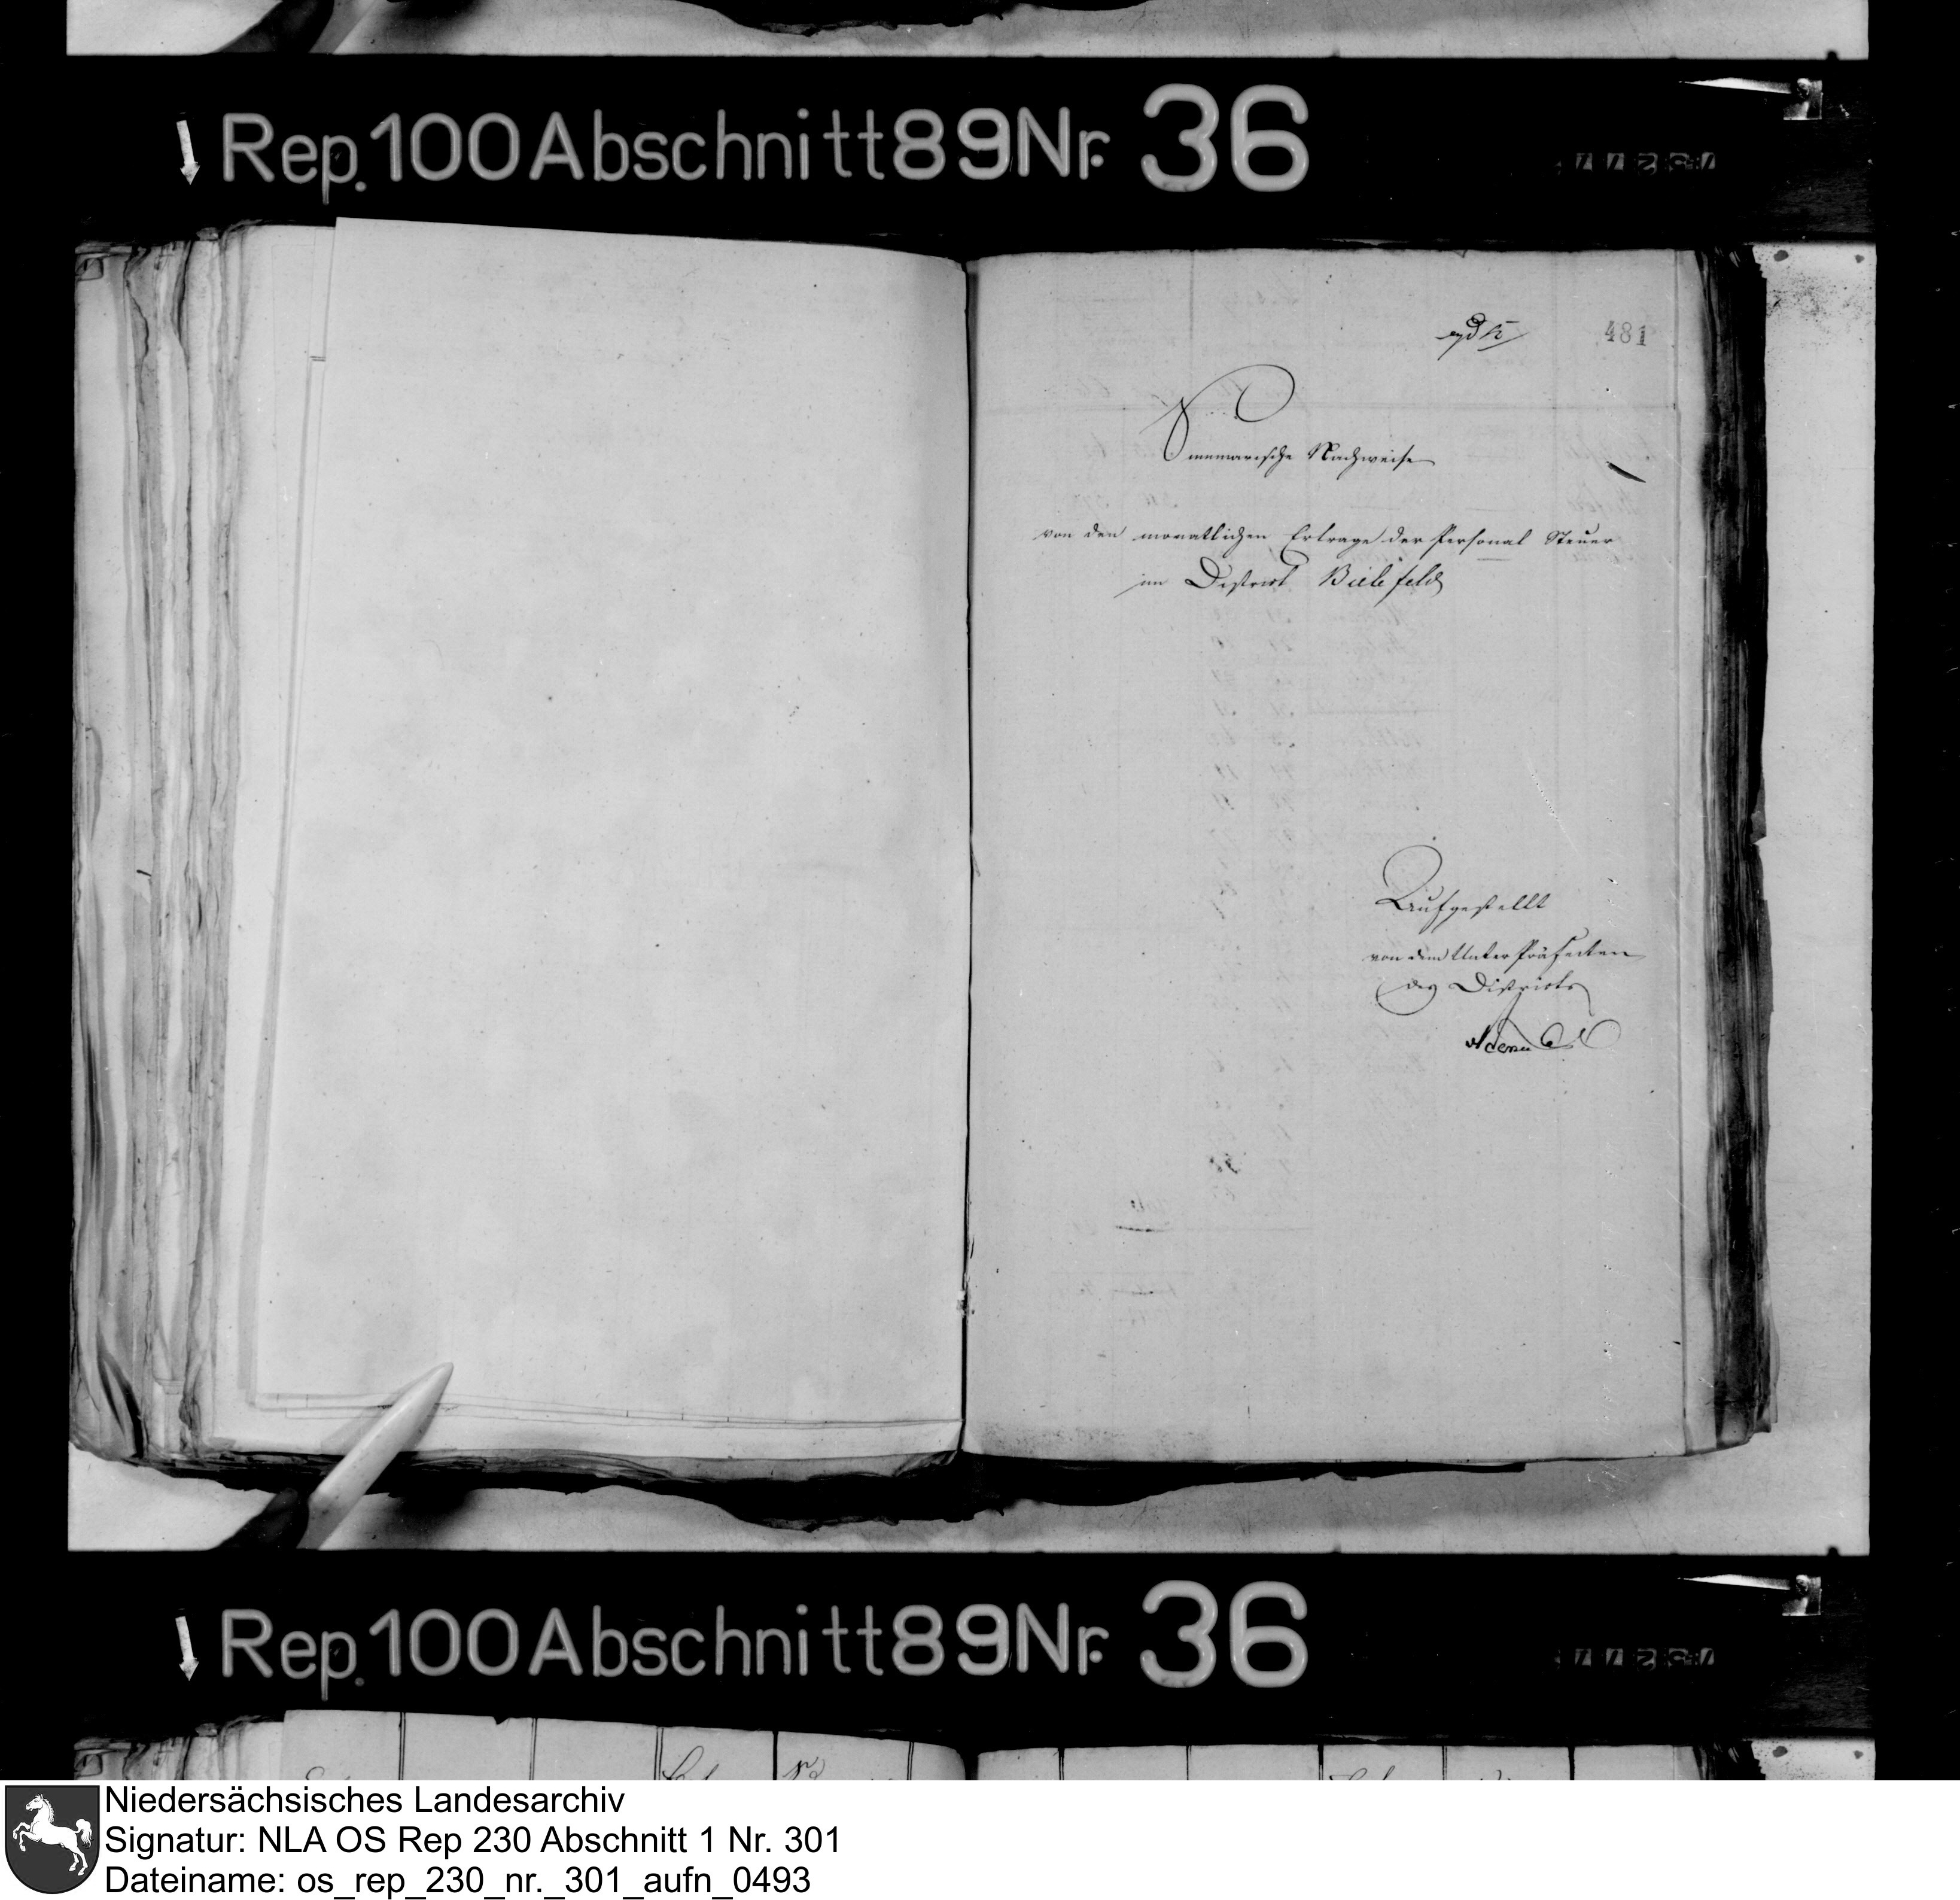 Rep.100 Abschnitt 89 Nr. 36
481
Summarische Nachweise
von den monatlichen Ertrage der Personal Steuer
im District Bielefeld
Aufgestellt
von dem Unter Präfecten
des Districts
Rep.100 Abschnitt 89 Nr. 36
Niedersächsisches Landesarchiv
Signatur: NLA OS Rep 230 Abschnitt 1 Nr. 301
Dateiname: os_rep_230_nr._301_aufn_0493